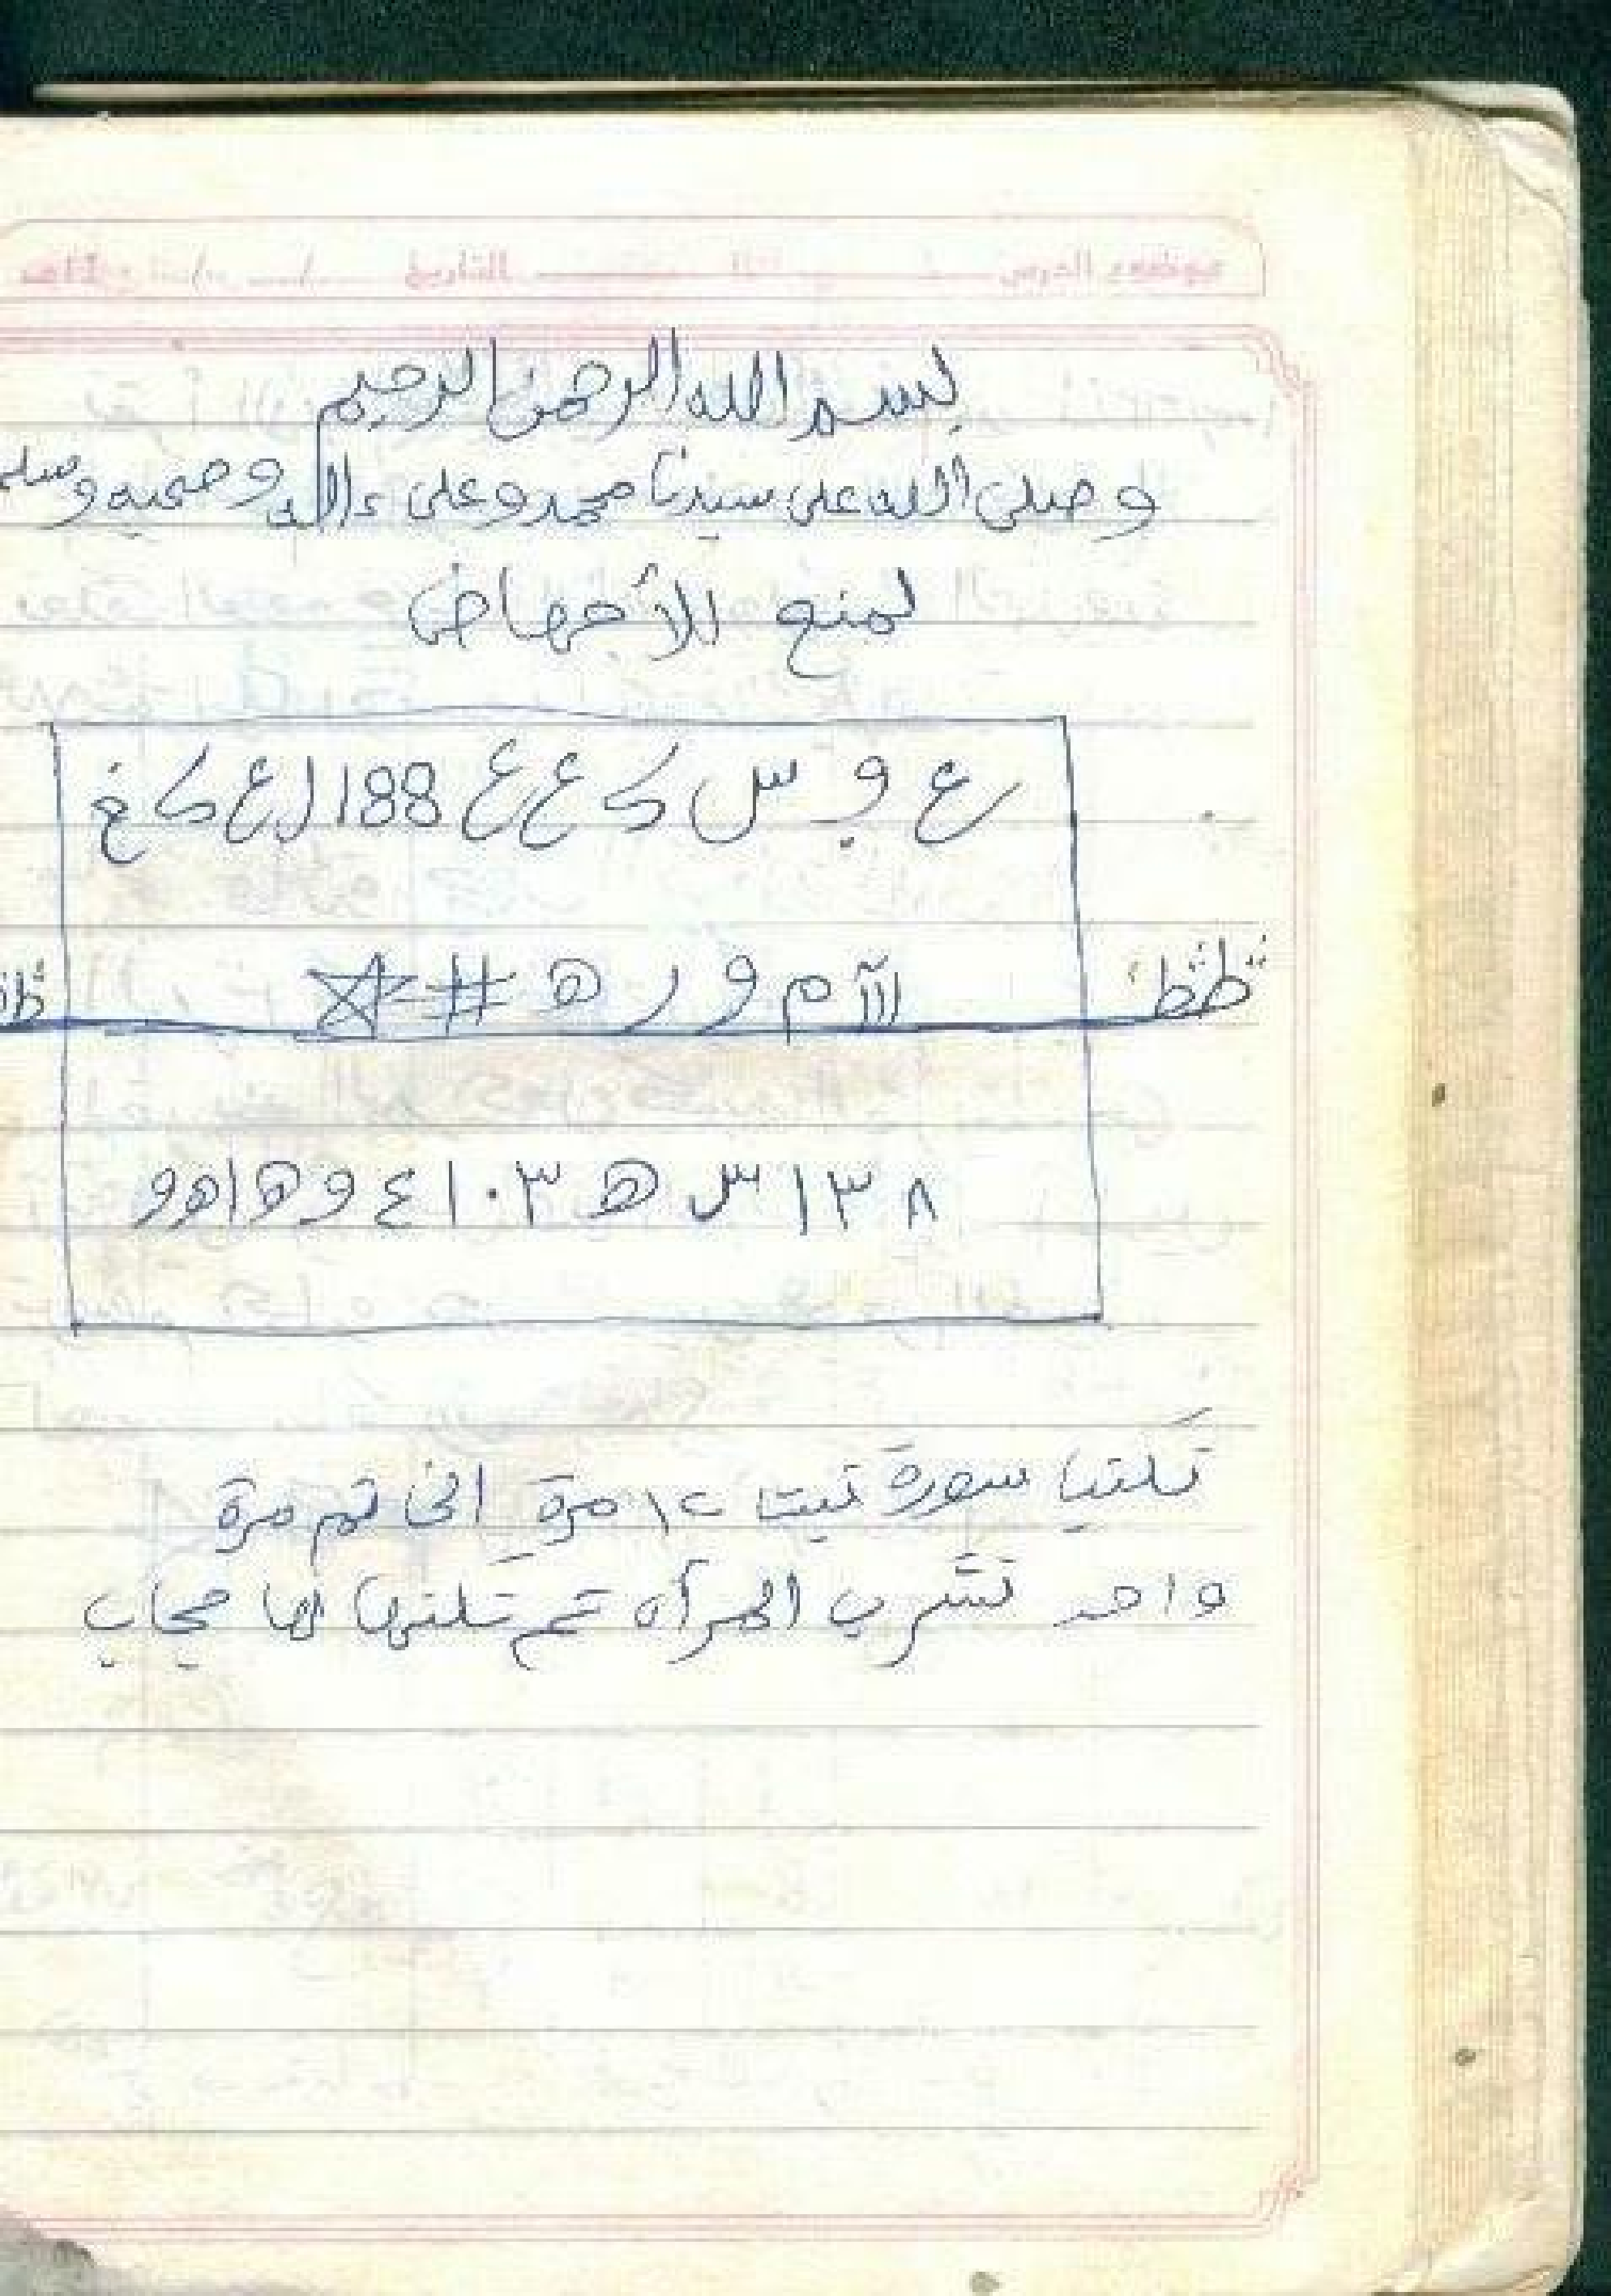 بسم الله الرحمن الرحيم
وصلى الله على سيدنا محمد وعلى ءاله وصحبه وسلم
لمنع الأجهاض
ع و س ک ع ع 188 ل ع ک غ
م و ر ه #
٨ ٣ ١ س ه ٣ ٠ ١ ٤ و ه ا ه و
سورة تبت ١٢ مرة تم مرة
واحد تشرب المرأه تم لها حجاب